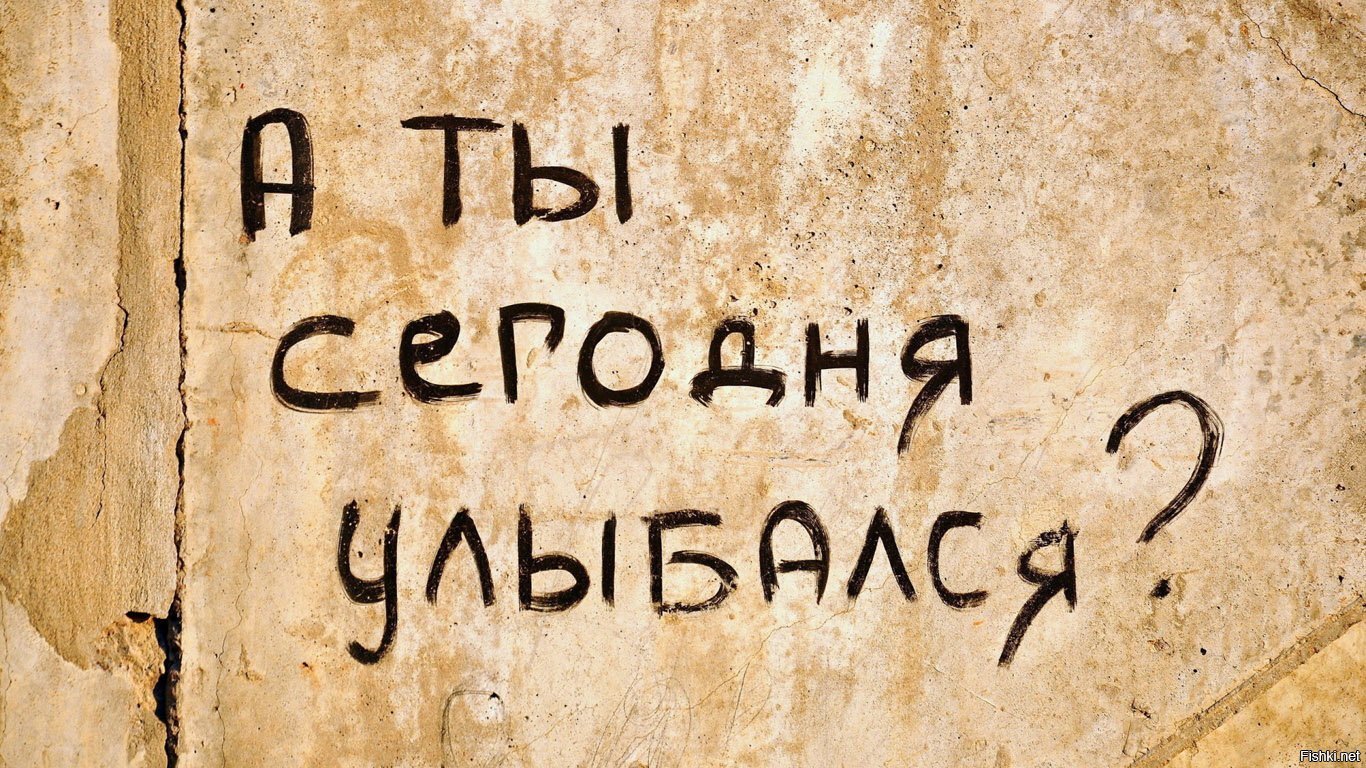 А ты
сегодня
улыбался?
Fishki.net